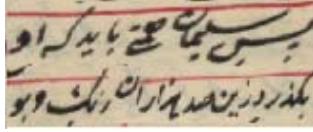 پس سلیمان همتی باید که او
بگذرد زین صد هزاران رنگ و بو